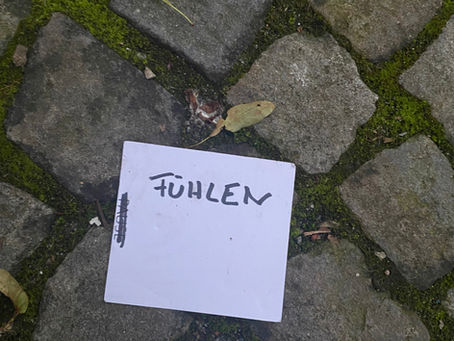 FÜHLEN